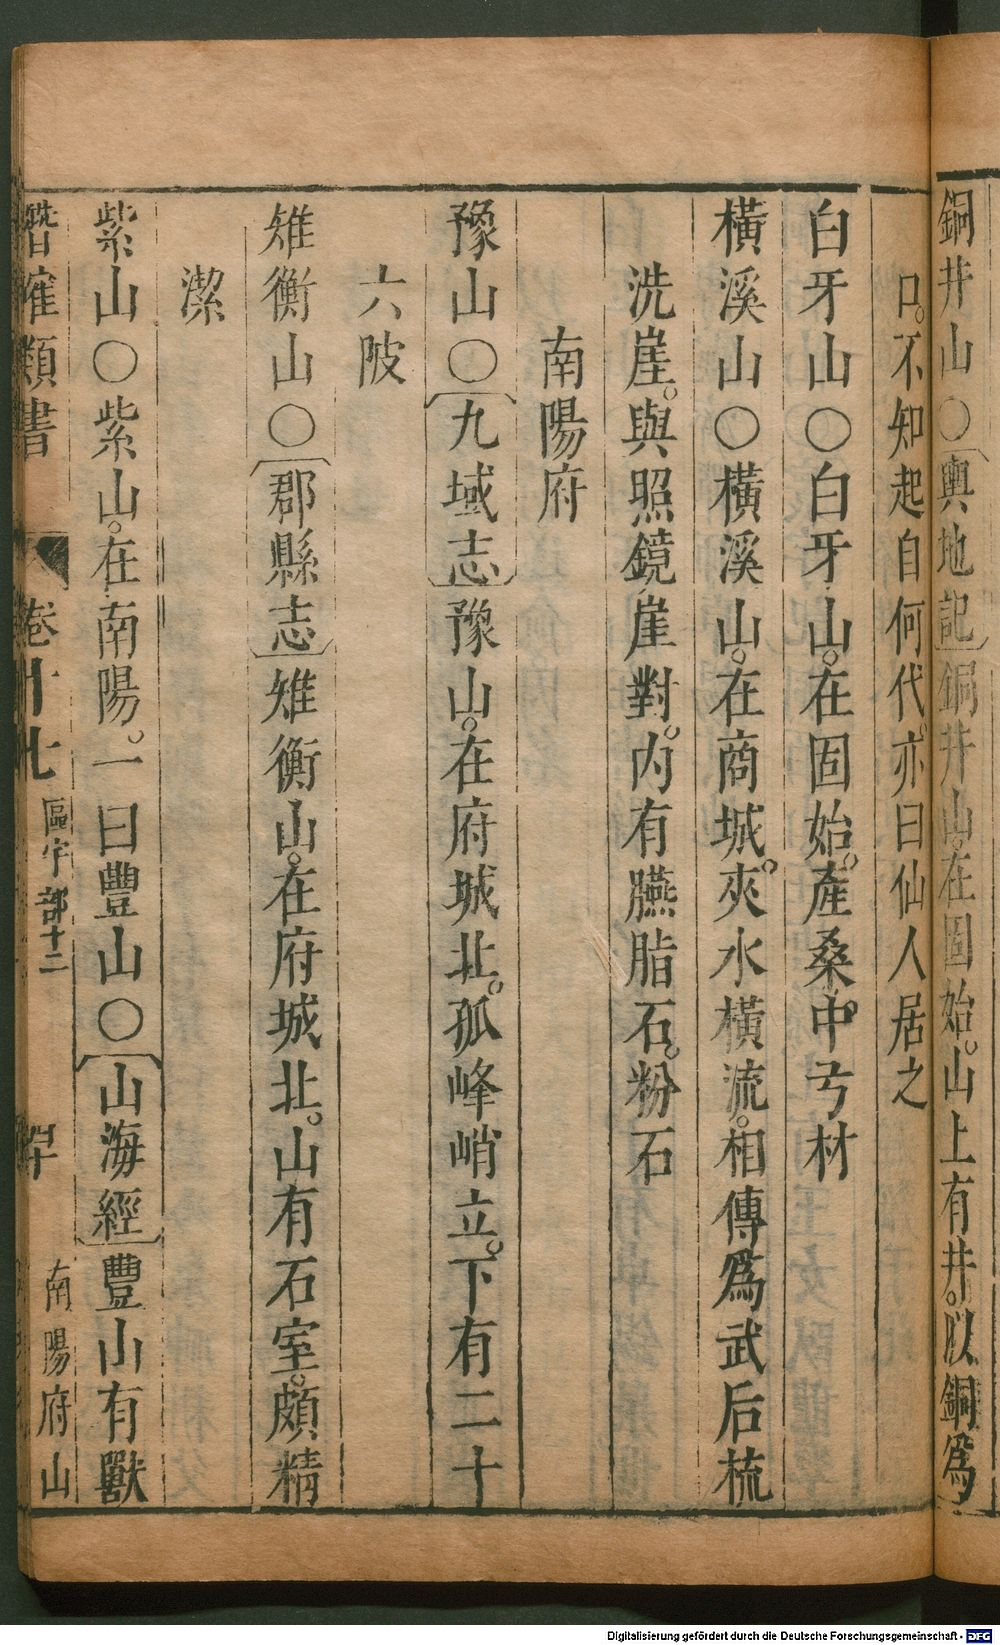 銅井山○〔輿地記〕銅井山。在固始。山上有井。以銅爲
口。不知起自何代。亦曰仙人居之
白牙山○白牙山。在固始。產桑。中弓材
橫溪山○橫溪山。在商城。夾水橫流。相傳爲武后梳
洗崖。與照鏡崖對。內有臙脂石。粉石
南陽府
豫山○〔九域志〕豫山。在府城北。孤峰峭立。下有二十
六陂
雉衡山○〔郡縣志〕雉衡山。在府城北。山有石室。頗精
潔
紫山○紫山。在南陽。一曰豐山○〔山海經〕豐山有獸
潛確類書 卷廿七 區宇部十二 南陽府山
Digitalisierung gefördert durch die Deutsche Forschungsgemeinschaft - DFG